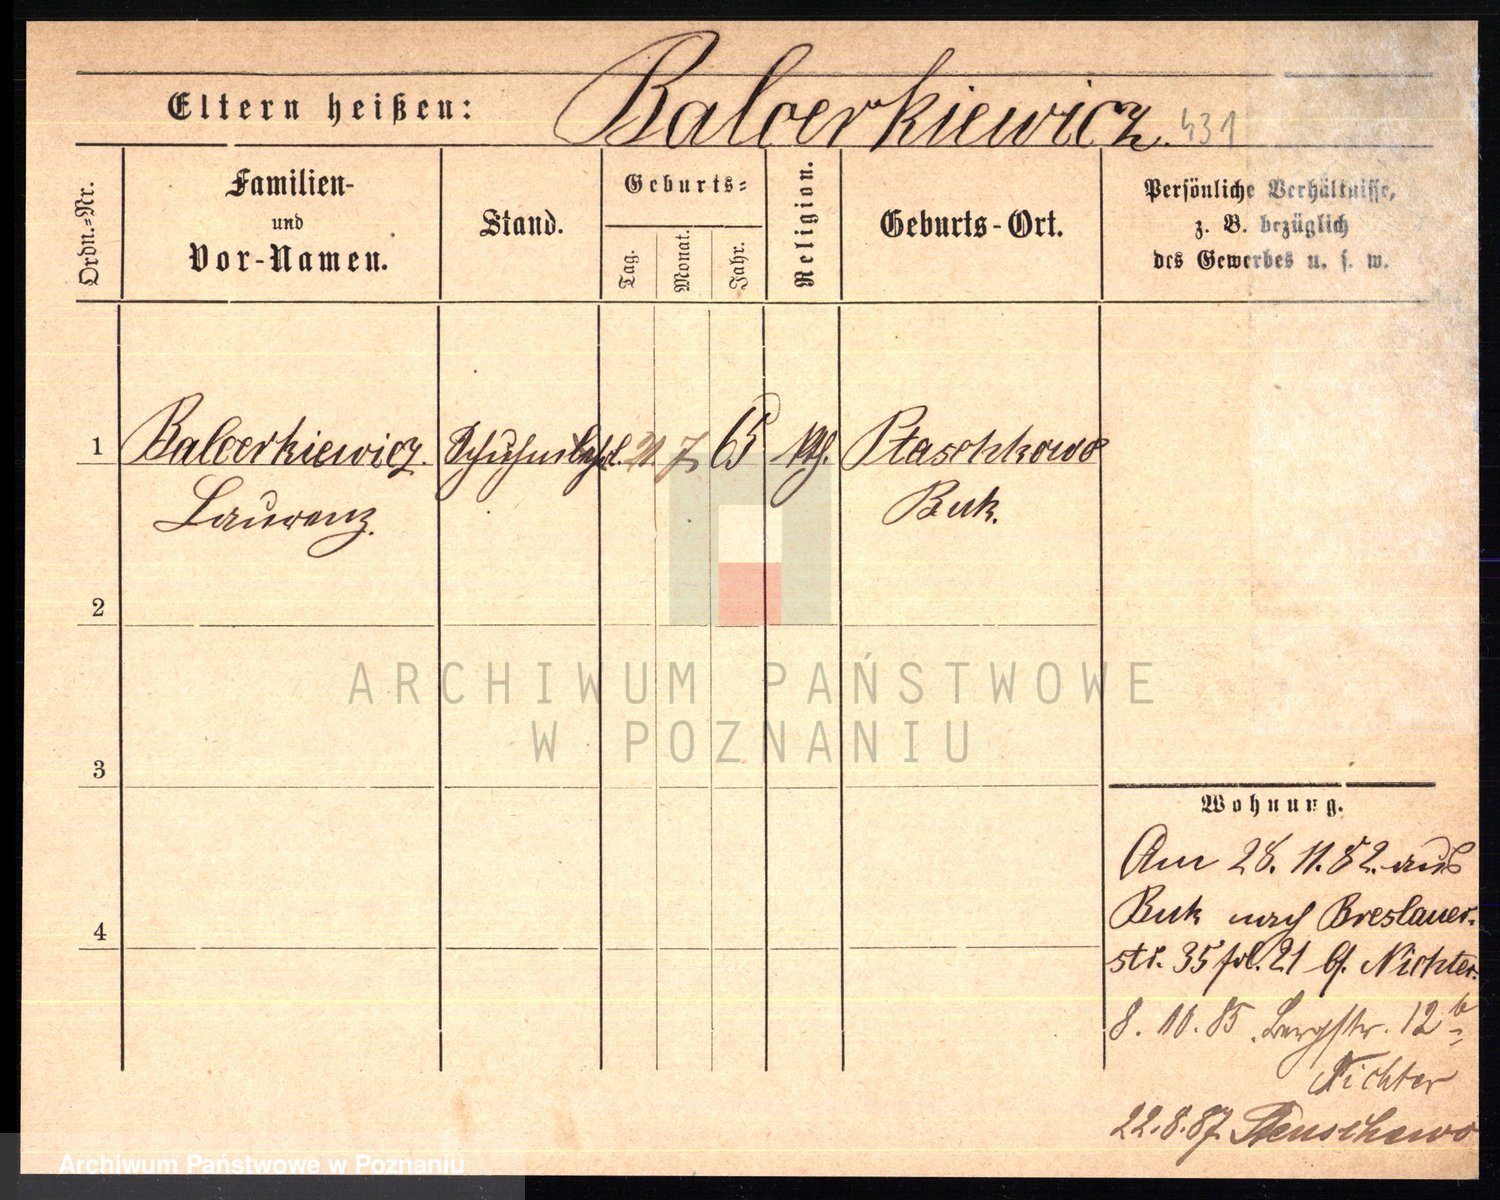 Eltern heißen: Balcerkiewicz. 431
Ordn.-Nr.
Familien-
und
Vor-Namen.
Stand.
Geburts-
Tag.
Monat.
Jahr.
Religion.
Geburts-Ort.
Persönliche Verhältnisse,
z. B. bezüglich
des Gewerbes u. s. w.
1 Balcerkiewicz. 21 7 65 kth. Ptaschkowo
Laurenz. Buk.
2
3
4
ARCHIWUM PAŃSTWOWE
W POZNANIU
Wohnung.
Am 28. 11. 82. aus
Buk nach Breslauer-
str. 35 21 b. Nichter.
8. 10. 85. Bergstr. 12 b
Nichter
22.8.87 Stenschewo
Archiwum Państwowe w Poznaniu